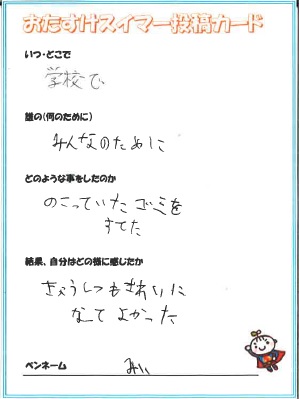 おたすけスイマー投稿カード
いつ・どこで
学校で
誰の(何のために)
みんなのために
どのような事をしたのか
のこっていたゴミを
すてた
結果、自分はどの様に感じたか
きょうしつもきれいに
なってよかった
ペンネーム
みい